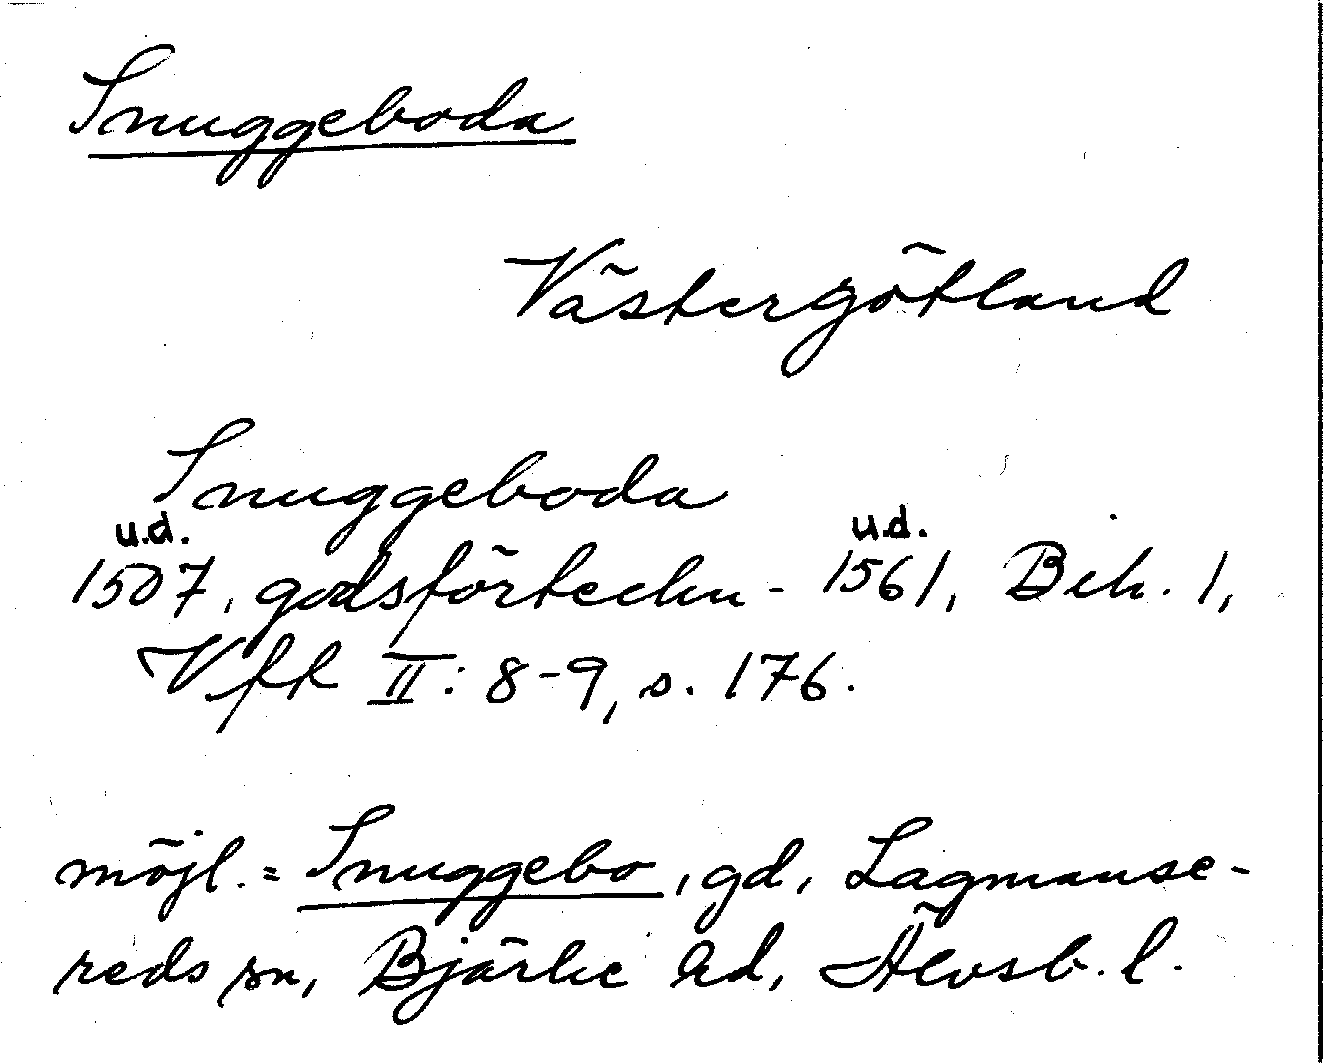 Snuggeboda
Västergötland
Snuggeboda
u.d. u.d.
1507, godsförteckn - 1561, Bih. 1,
Vfk II: 8-9, s. 176.
möjl. = Snuggebo, gd, Lagmanse-
reds sn, Bjärke hd, Älvsb. l.